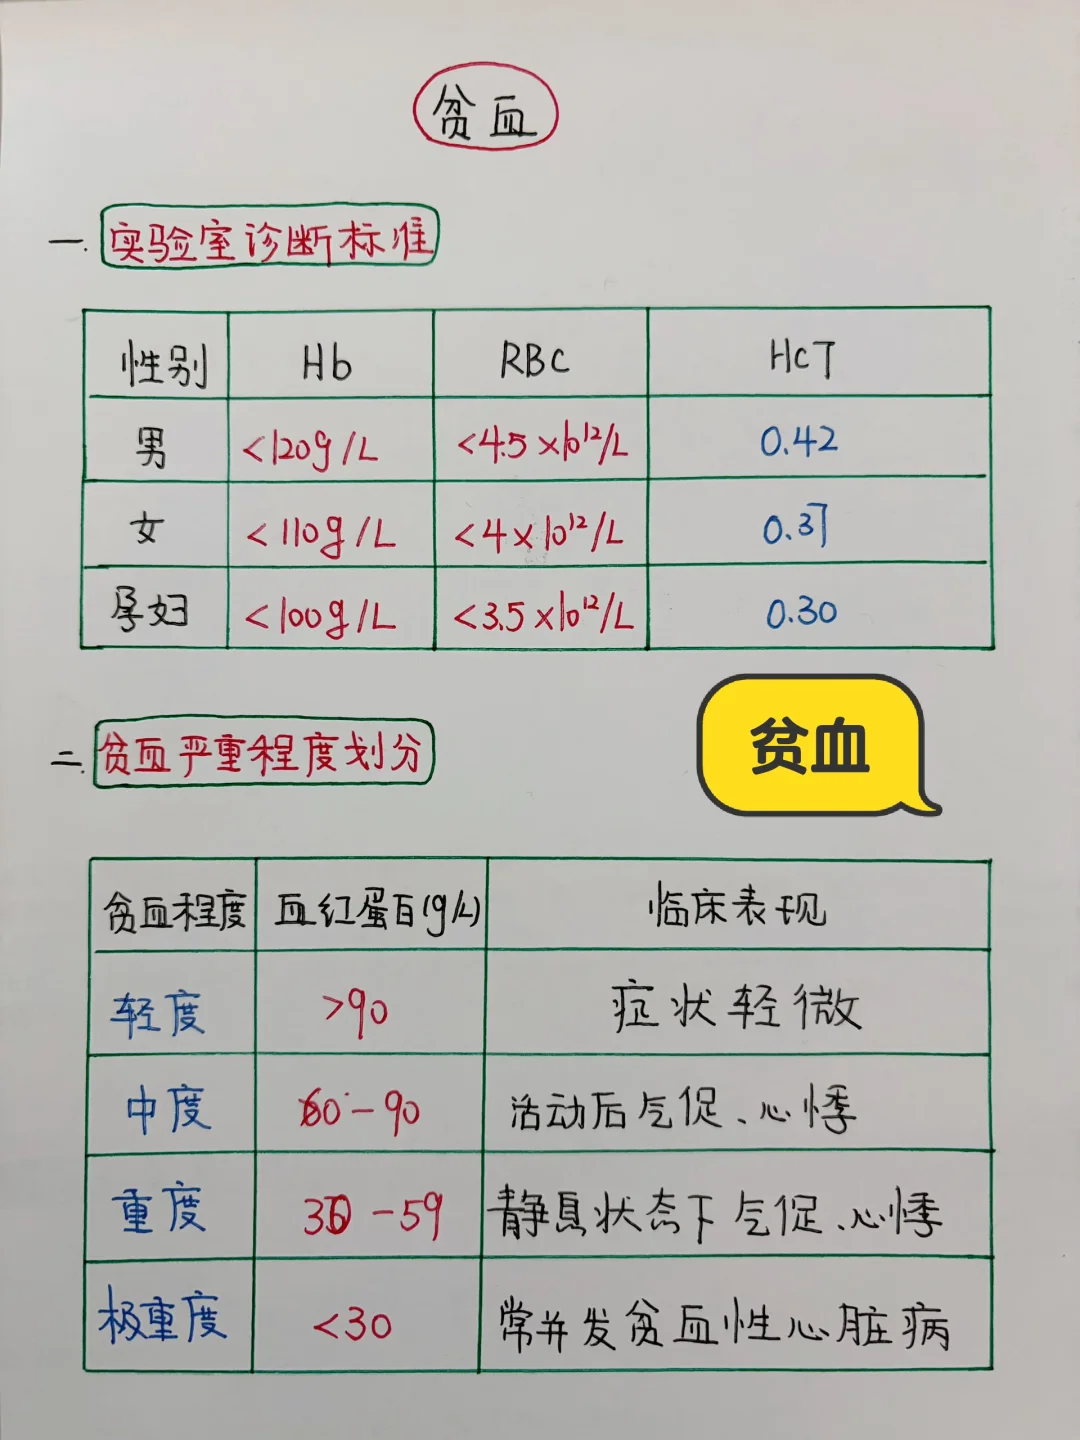 贫血
一. 实验室诊断标准
性别 Hb RBC HCT
男 <120g/L <4.5×10¹²/L 0.42
女 <110g/L <4×10¹²/L 0.37
孕妇 <100g/L <3.5×10¹²/L 0.30
二. 贫血严重程度划分
贫血
贫血程度 血红蛋白(g/L) 临床表现
轻度 >90 症状轻微
中度 60-90 活动后气促、心悸
重度 30-59 静息状态下气促、心悸
极重度 <30 常并发贫血性心脏病